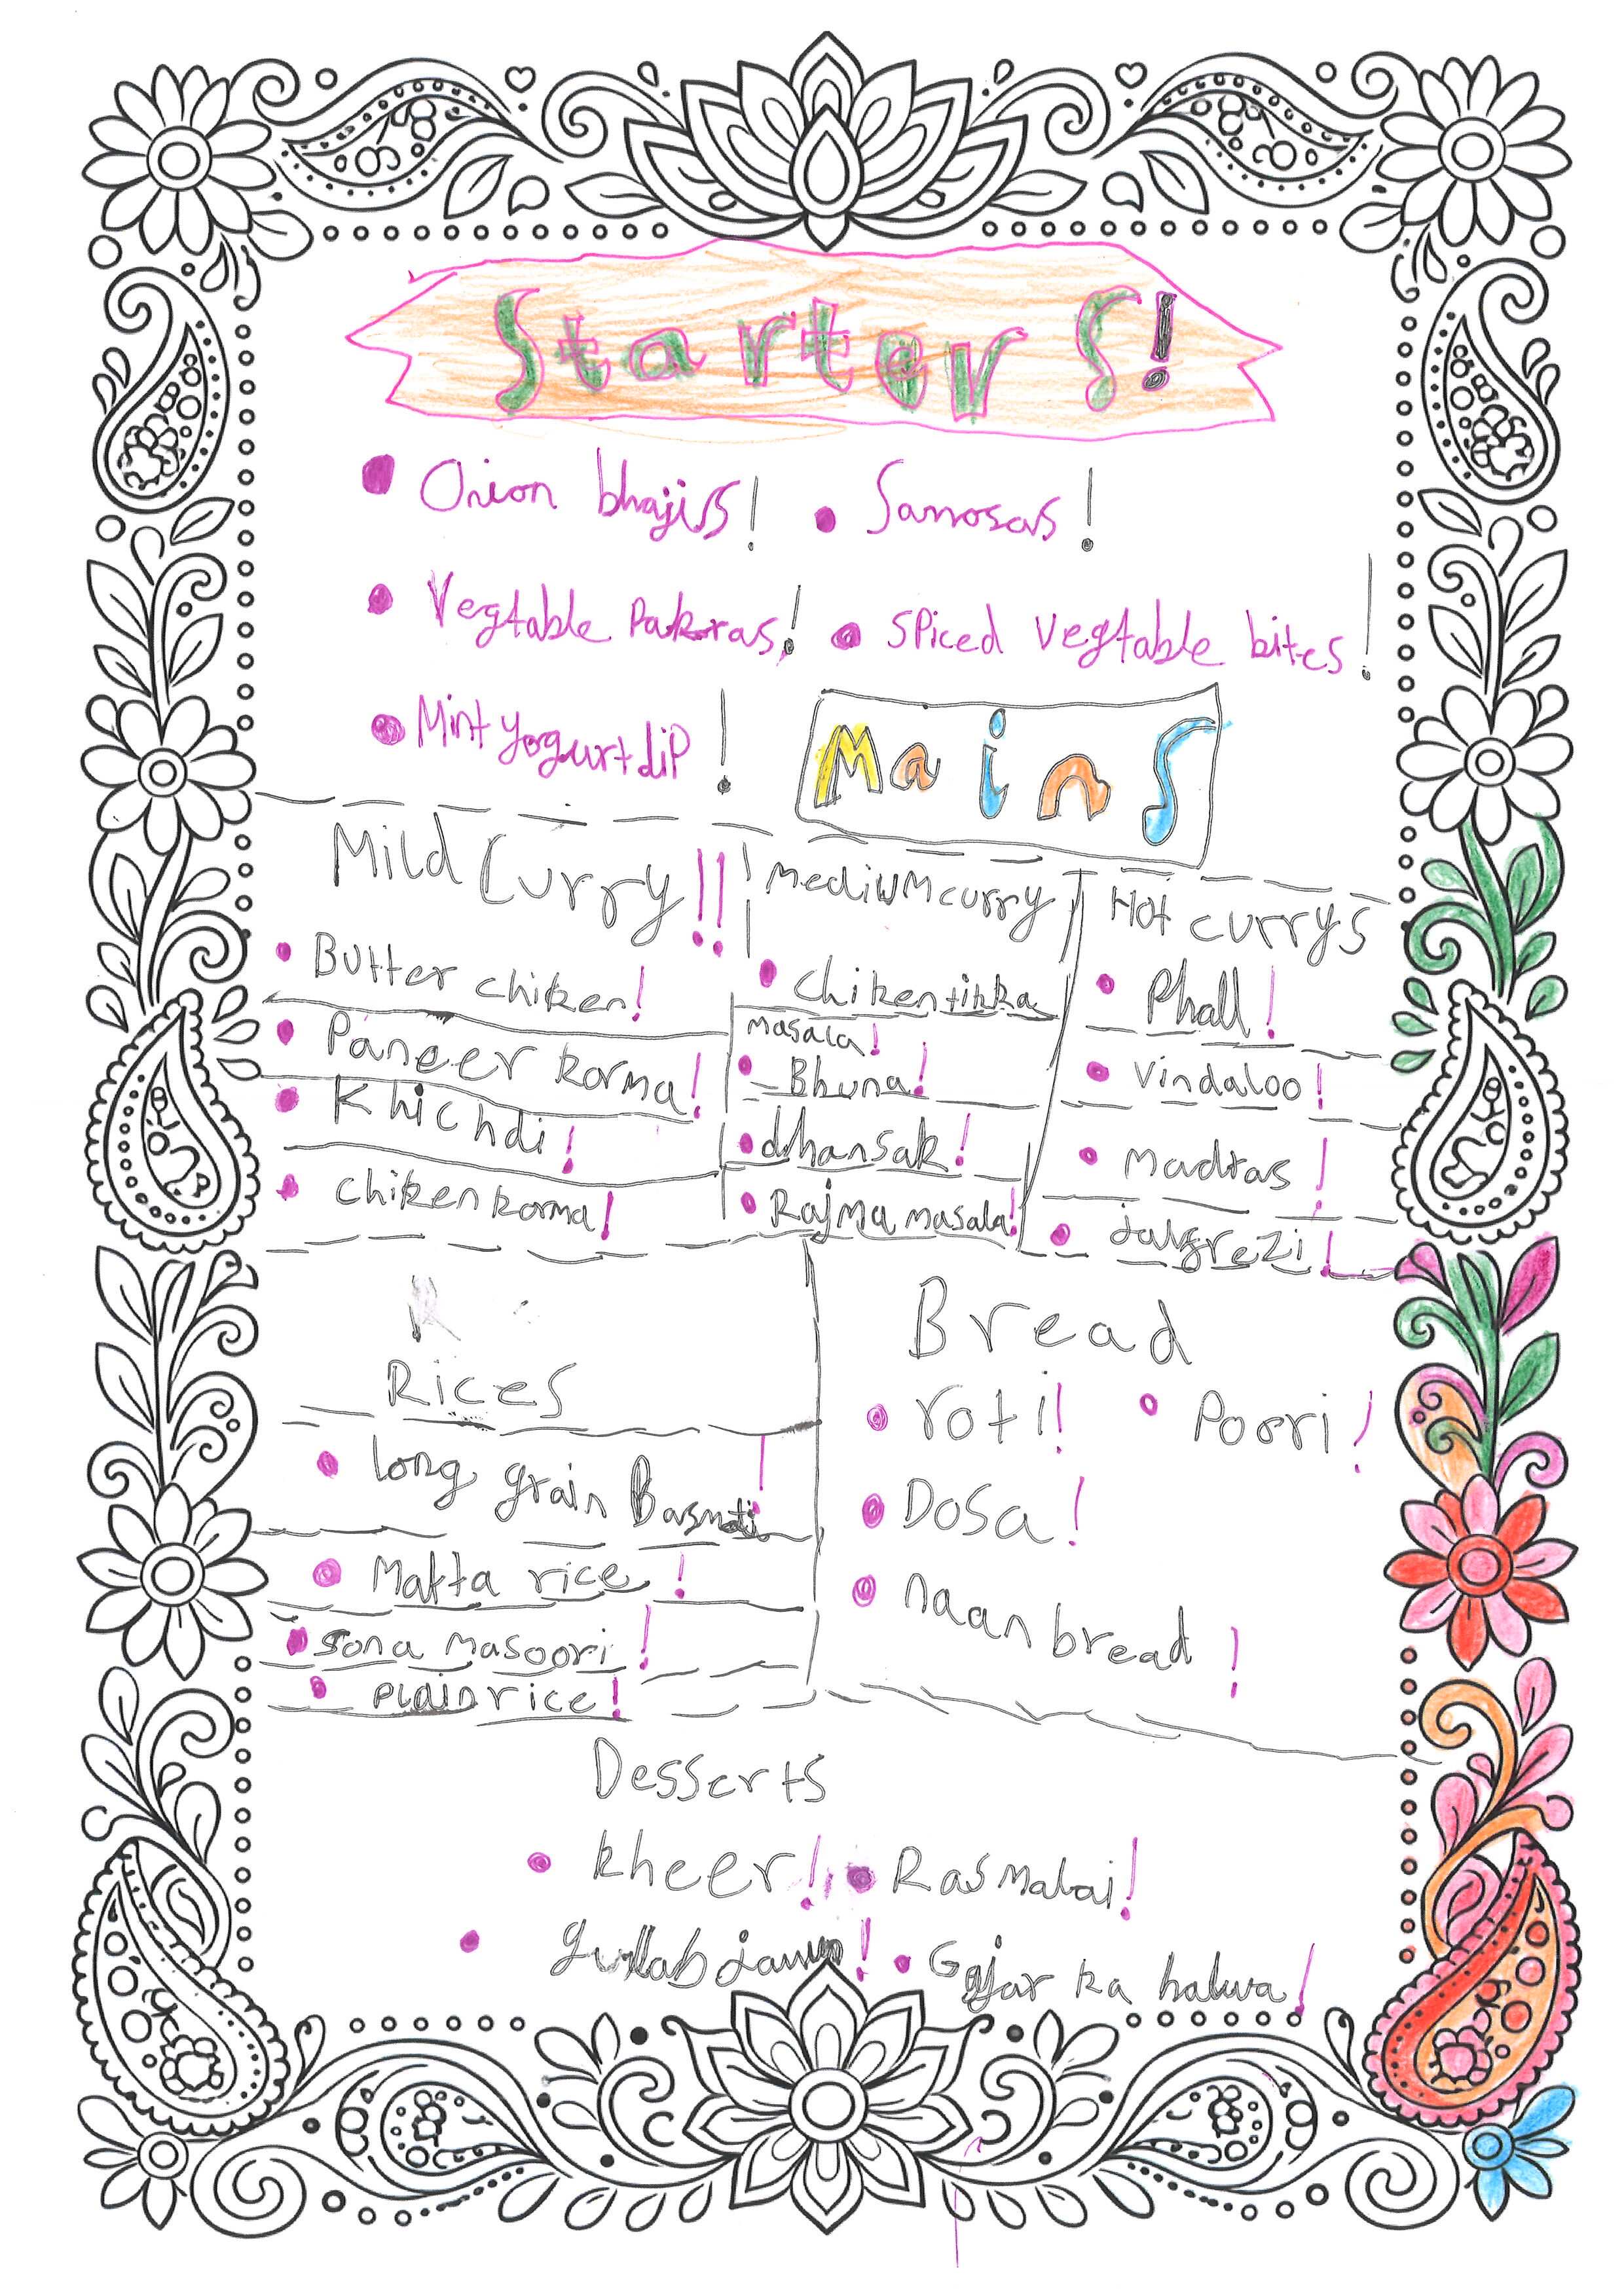 Starters!
Onion bhajis! Samosas!
Vegtable Pakras! SPiced vegtable bites!
Mint yogurt diP!
Mains
Mild Curry!!
Butter chiken!
Paneer korma!
Khichdi!
chiken korma!
Medium curry
chiken tikka
masala!
Bhuna!
dhansak!
Rajma masala!
Hot currys
Phall!
Vindaloo!
Madras!
Rices
long grain Basmati!
Matta rice!
sona masoori!
Plain rice!
Bread
roti! Poori!
Dosa!
naan bread!
Desserts
kheer! Rasmalai!
gullab jamun! Gajar ka halwa!